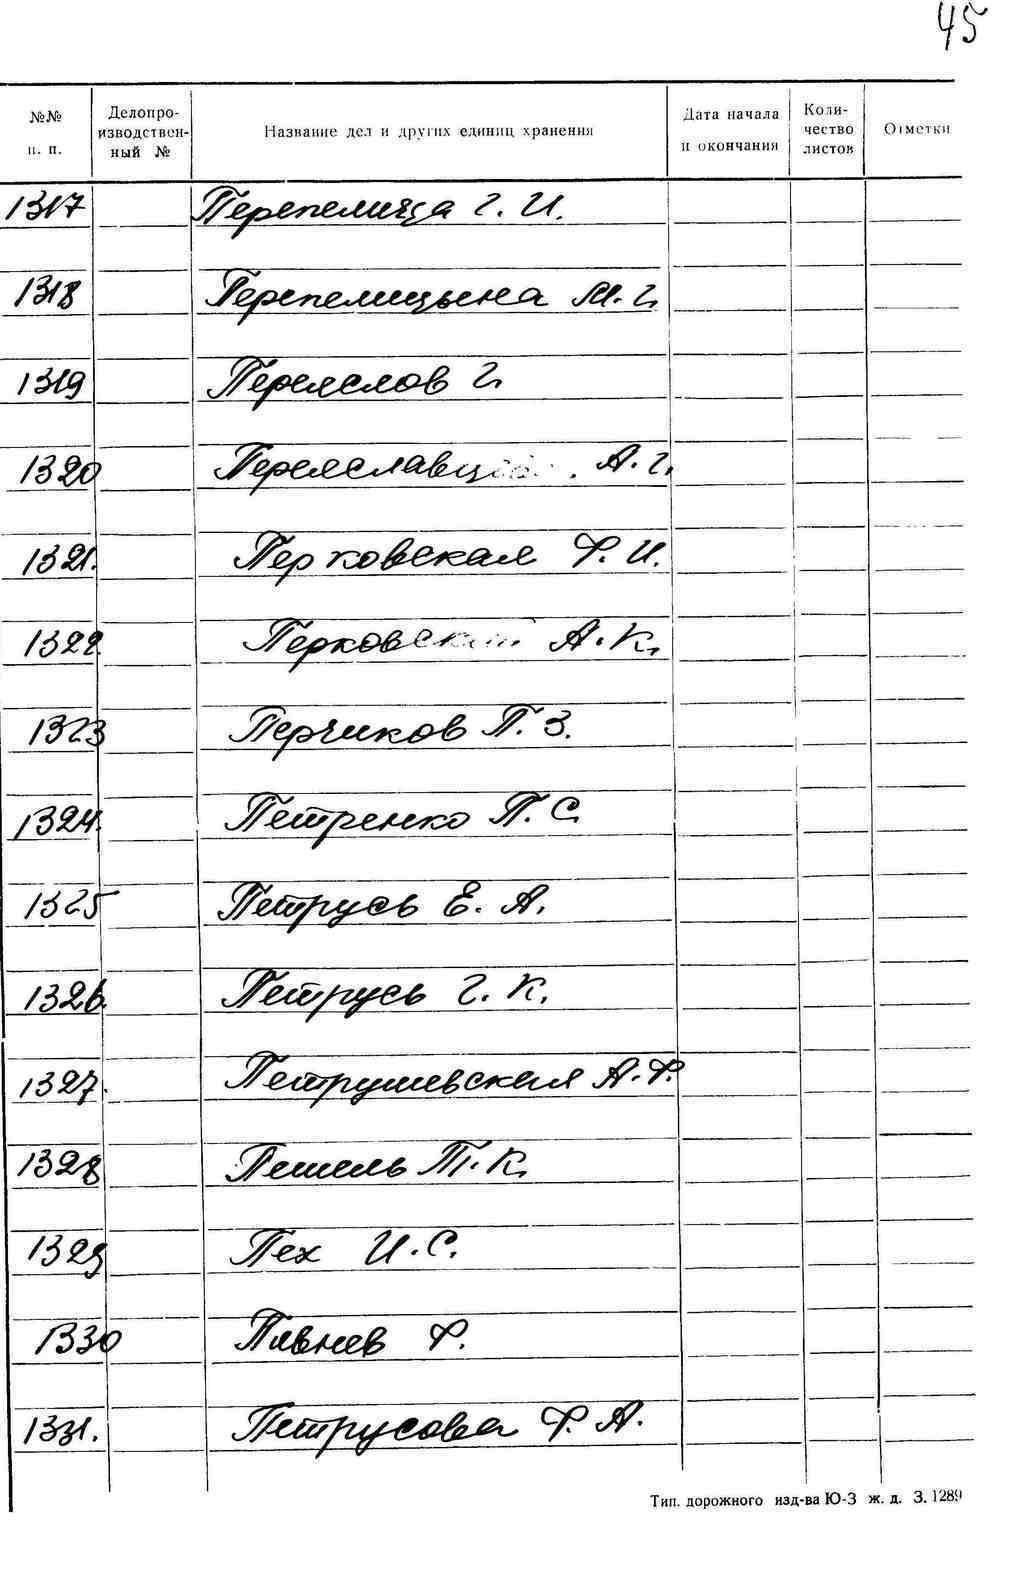 45
№№ п. п. Делопроизводственный № Название дел и других единиц хранения Дата начала и окончания Количество листов Отметки
1317 Перепелица Г. И.
1318 Перепелицына М. Г.
1319 Переяслов Г.
1320 А. Г.
1321. Перковская Ф. И.
1322 А. К.
1323 Перчиков П. З.
1324. Петренко П. С.
1325 Петрусь Е. А.
1326. Петрусь Г. К.
1327. Петрушевская А. Ф.
1328 Пешель Т. К.
1329 Пех И. С.
1330 Ф.
1331. Петрусова Ф. А.
Тип. дорожного изд-ва Ю-З ж. д. З. 1289